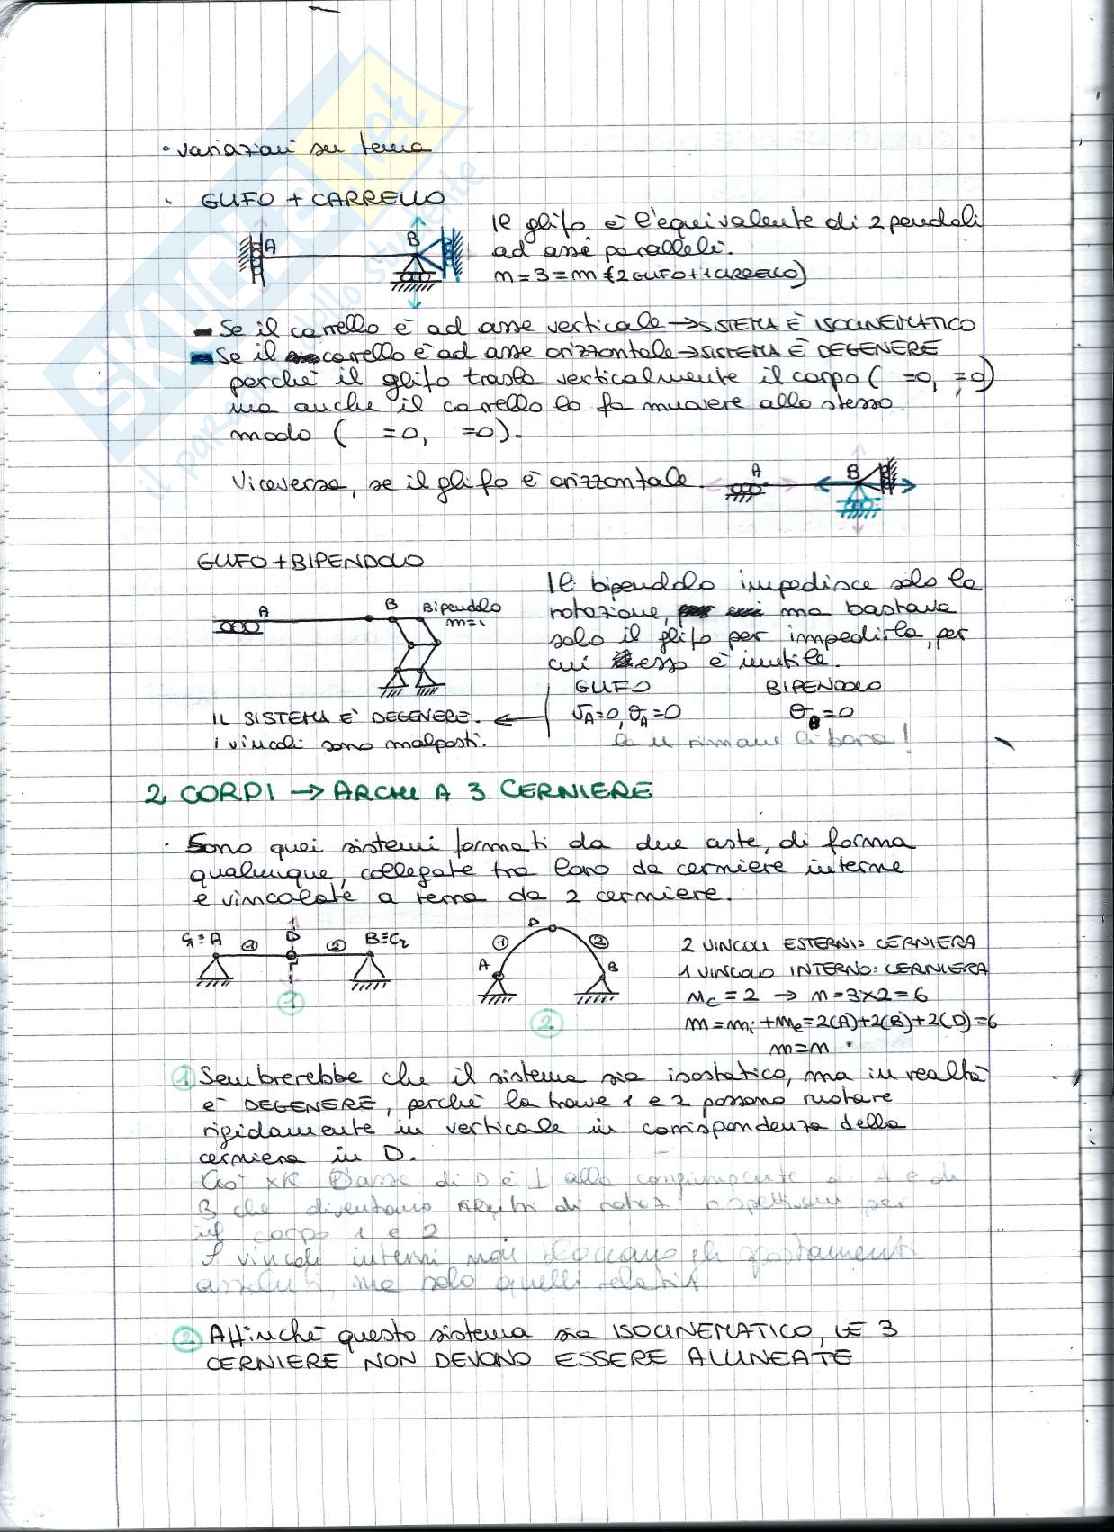 • variazioni su tema
. GLIFO + CARRELLO
A
B
Il glifo è l'equivalente di 2 pendoli
ad asse paralleli.
n = 3 = m (2 GLIFO + 1 CARRELLO)
- Se il carrello è ad asse verticale → SISTEMA È ISOCINEMATICO
- Se il carrello è ad asse orizzontale → SISTEMA È DEGENERE
perché il glifo trasla verticalmente il corpo ( =0, =0)
ma anche il carrello lo fa muovere allo stesso
modo ( =0, =0).
Viceversa, se il glifo è orizzontale.
A
B
GLIFO + BIPENDOLO
A
B
Bipendolo
m=1
Il bipendolo impedisce solo la
rotazione, ma bastava
solo il glifo per impedirla, per
cui esso è inutile.
GLIFO BIPENDOLO
VA=0, θA=0 θB=0
IL SISTEMA E' DEGENERE. ←
i vincoli sono malposti.
la u rimane libera!
2 CORPI → ARCHI A 3 CERNIERE
. Sono quei sistemi formati da due aste, di forma
qualunque, collegate tra loro da cerniere interne
e vincolate a terra da 2 cerniere.
C1≡A 1 D 2 B≡C2
1
A 1 D 2 B
2
2 VINCOLI ESTERNI: CERNIERA
1 VINCOLO INTERNO: CERNIERA
nc = 2 → n = 3x2 = 6
m = mi + me = 2(A)+2(B)+2(D) = 6
m = n
1 Sembrerebbe che il sistema sia isostatico, ma in realtà
e' DEGENERE, perché la trave 1 e 2 possono ruotare
rigidamente in verticale in corrispondenza della
cerniera in D.
Ciò xk l'asse di D è ⊥ alla congiungente di A e di
B che diventano centri di rotaz rispettivam per
il corpo 1 e 2
I vincoli interni non bloccano gli spostamenti
assoluti, ma solo quelli relativi
2 Affinché questo sistema sia ISOCINEMATICO, LE 3
CERNIERE NON DEVONO ESSERE ALLINEATE